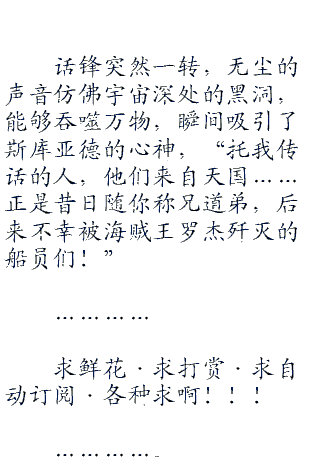 话锋突然一转，无尘的
声音仿佛宇宙深处的黑洞，
能够吞噬万物，瞬间吸引了
斯库亚德的心神，“托我传
话的人，他们来自天国……
正是昔日随你称兄道弟，后
来不幸被海贼王罗杰歼灭的
船员们！”
…………
求鲜花·求打赏·求自
动订阅·各种求啊！！！
…………。